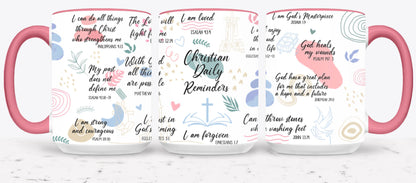 I can do all things
through Christ
who strengthens me
PHILIPPIANS 4:13
My past
does not
define me
ISAIAH 43:18-19
I am strong
and courageous
The L
will
fight m
With God
all th
are possible
MATTHEW
I am
God's
I am loved
ISAIAH 43:4
Christian
Daily
Reminders
I am forgiven
EPHESIANS 1:7
I am God's Masterpiece
enjoy
and
life
God heals
my wounds
PSALM 147:3
God have great plan
for me that includes
a hope and a future
JEREMIAH 29:11
throw stones
washing feet
JOHN 13:14